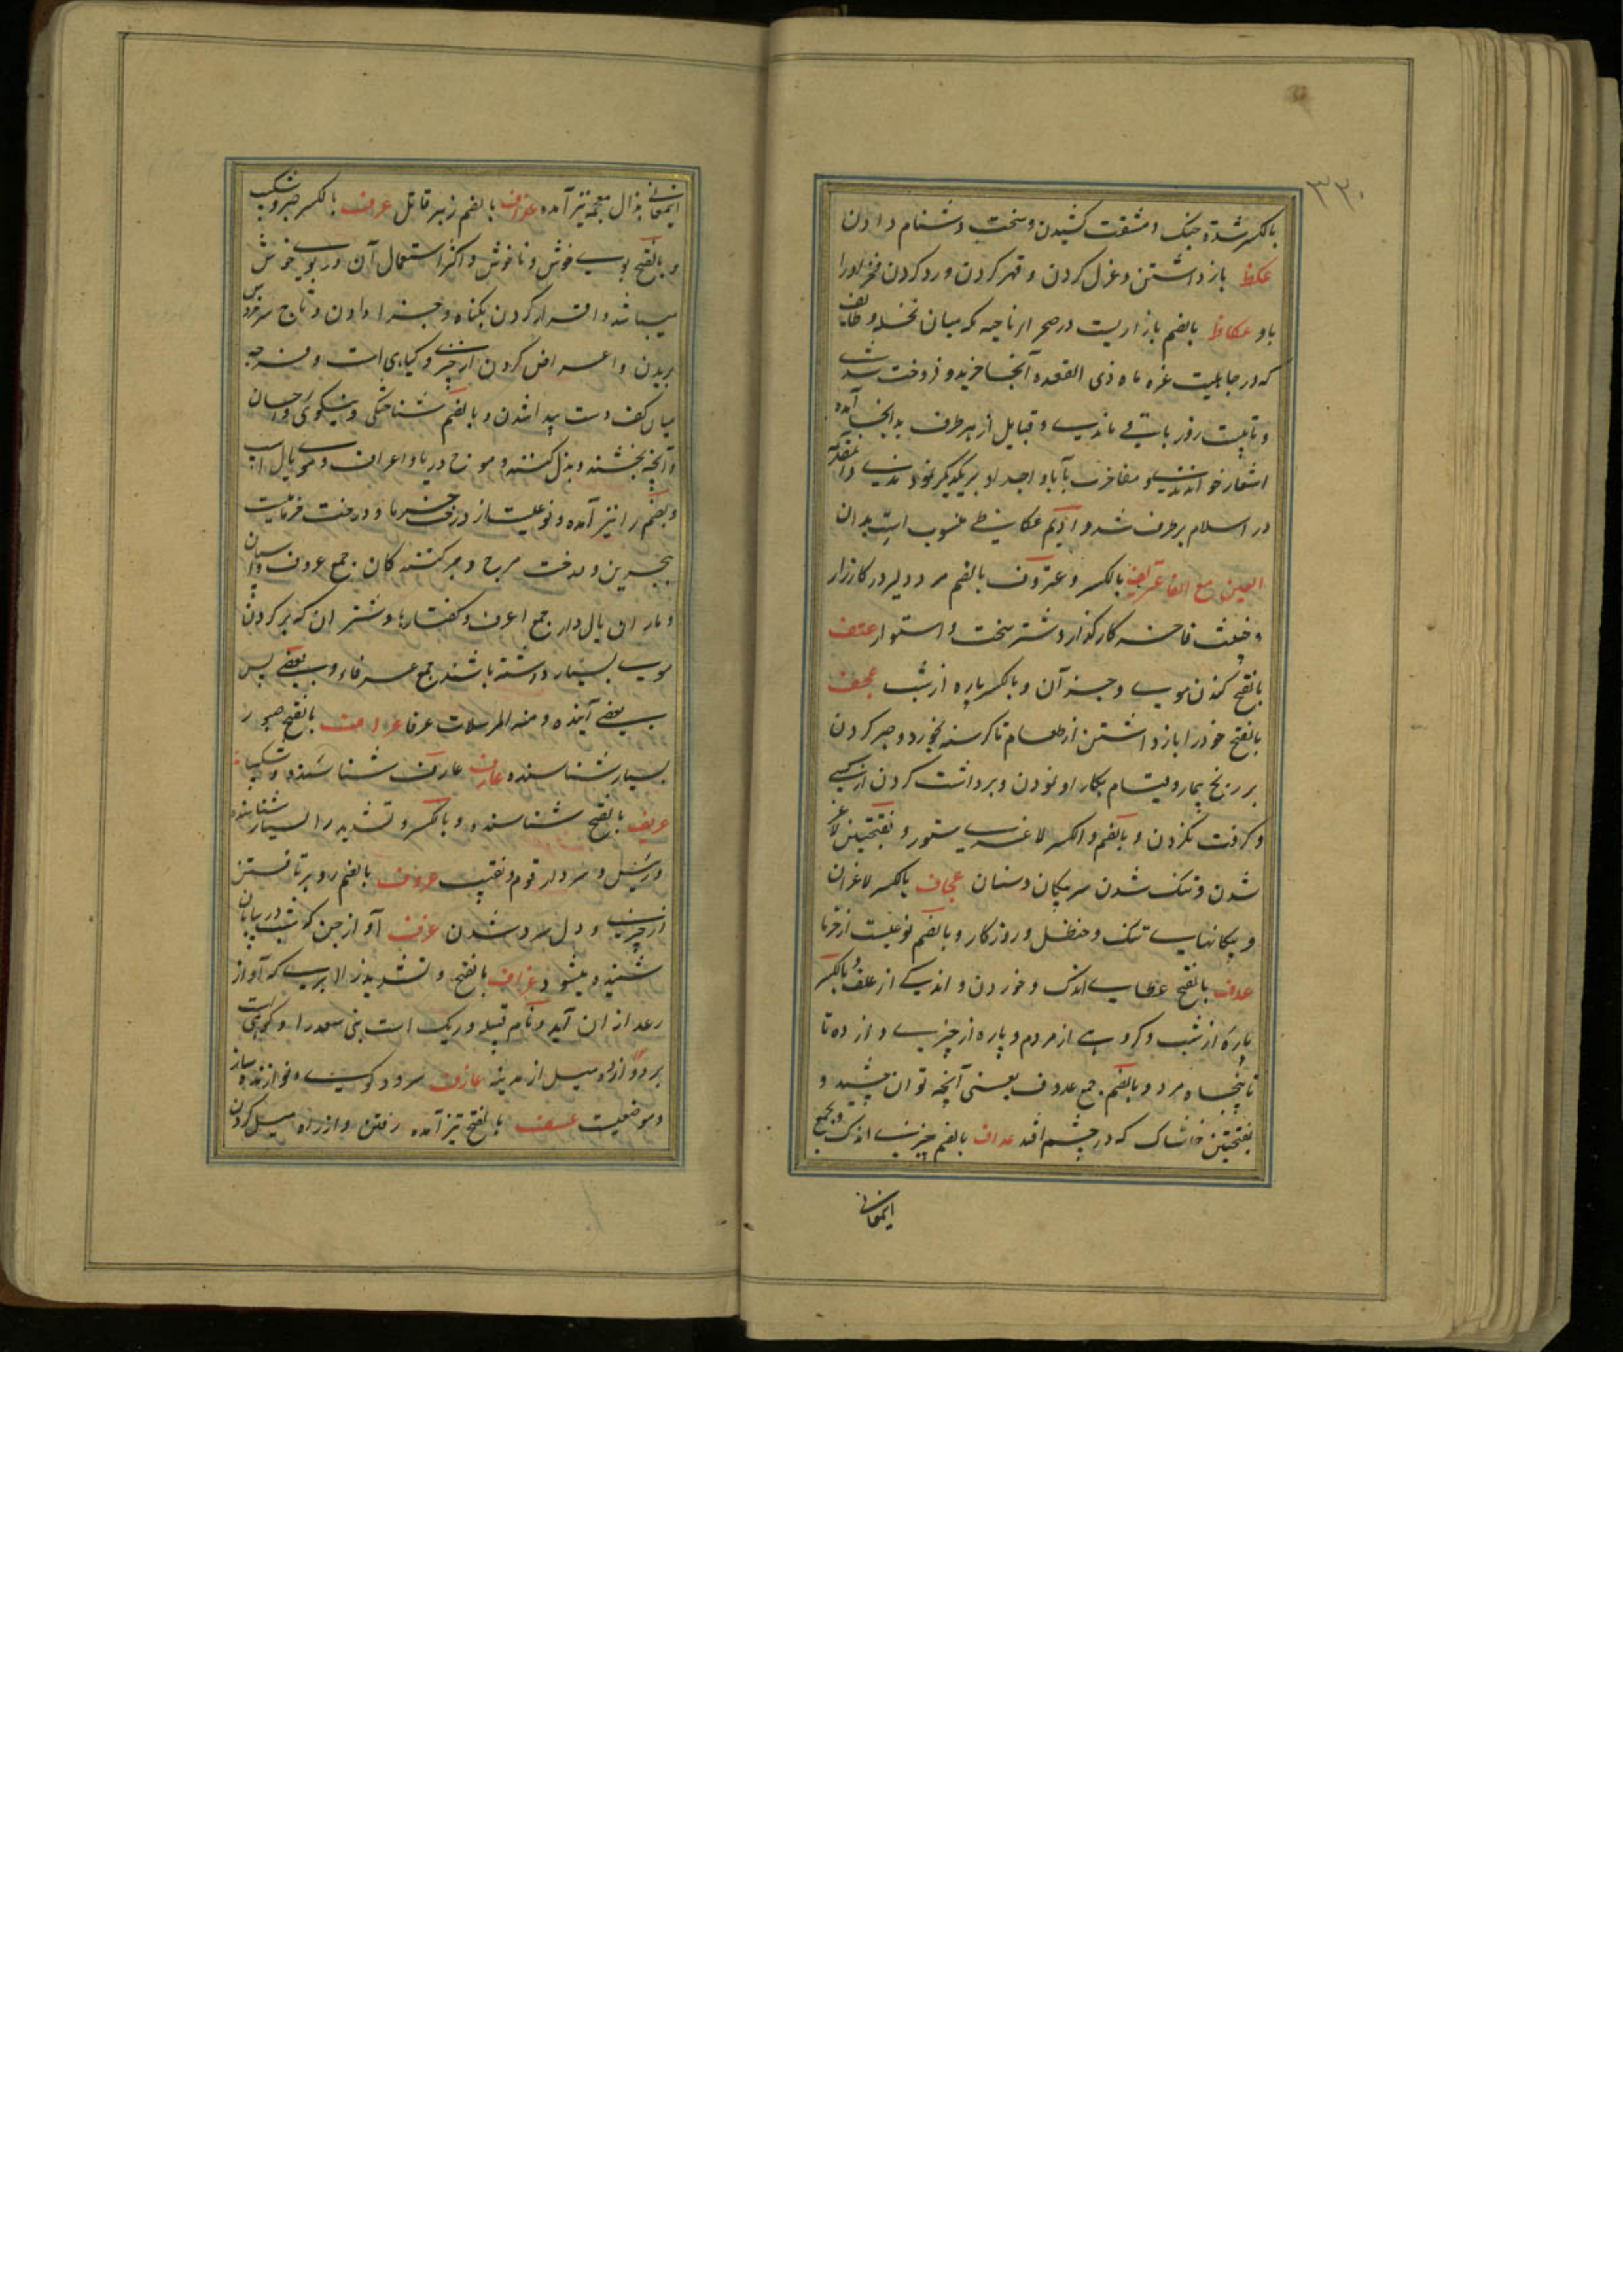 ۳۳۰
بالکسر شدة جنک و مشقت کشیدن و سخت و دشنام دادن
عکظ باز داشتن و عزل کردن و قهر کردن و رد کردن فخر او را
باو عکاظ بالضم بازاریست در صحرا ناحیه مکه میان نخله و طایف
که در جاهلیت غره ماه ذی القعده آنجا خرید و فروخت شدی
و تا بیست روز باقی ماندی و قبایل از هر طرف بدانجا آمده
اشعار خواندندی و مفاخرت بآبا و اجداد بر یکدیکر نمودندی
در اسلام بر طرف شد و ادیم عکاظی منسوب است بدان
العین مع الفا عتریف بالکسر و عتروف بالضم مرد دلیر در کارزار
و خبیث فاجر کارکذار و شتر سخت و استوار عتف
بالفتح کندن موی و جز آن و بالکسر پاره از شب عجف
بالفتح خود را باز داشتن از طعام تا کرسنه بخورد و صبر کردن
بر رنج بیمار و بتیمار بکار او نمودن و برداشت کردن از کسی
و کرفت نکردن و بالضم و الکسر لاغری ستور و بفتحتین لاغر
شدن و تنک شدن سر پیکان و سنان عجاف بالکسر لاغران
و پیکانهای تنک و حنظل و روزکار و بالضم نوعیست از خرما
عدف بالفتح عطای اندک و خوردن و اندکی از علف و بالکسر
پاره از شب و کروهی از مردم و پاره از چیزی و از ده تا
تا پنجاه مرد و بالضم جمع عدوف بعنی آنچه توان چشید و
بفتحتین خاشاک که در چشم افتد عداف بالضم چیزی اندک
ایمعانی
ایمعانی بذال معجمه نیز آمده عذاف بالضم زهر قاتل عرف بالکسر صبر و شکیب
و بالفتح بوی خوش و ناخوش و اکثر استعمال آن در بوی خوش
میباشد و اقرار کردن بکناه و جزا دادن و تاج سر خروس
بریدن و اعراض کردن از چیزی و کیاهی است و قرحه
میان کف دست پیدا شدن و بالضم شناختکی و نیکوی و احسان
و آنچه بخشند و بذل کنند و موج دریا و اعراف و موی یال اسب
و بضم را نیز آمده و نوعیست از درخت خرما و درخت خرمائیست
ببحرین و درخت و جمع عروف
و ماران یال دار جمع اعرف و کفتارها و شتران که بر کردن
موی بسیار داشته باشند جمع عرفاء و بعضی پس
بعضی آینده و منه المرسلات عرفا عرافت بالفتح صبور
بسیار شناسنده عارف عارف شناسنده و شکیبا
عریف بالفتح شناسنده و بالکسر و تشدید را بسیار شناسنده
و رئیس و سردار قوم و نقیب عزوف بالضم رو برتافتن
از چیزی و دل سرد شدن عزف آواز جن که شب در بیابان
شنیده میشود عزاف بالفتح و تشدید زا ابری که آواز
رعد از ان آید و نام قبیله و ریک است بنی سعد را و کوهی است
بر دوازده میل از مدینه عازف سرود کوینده و نوازنده ساز
و موضعیست عسف بالفتح نیز آمده رفتن و از راه میل کردن